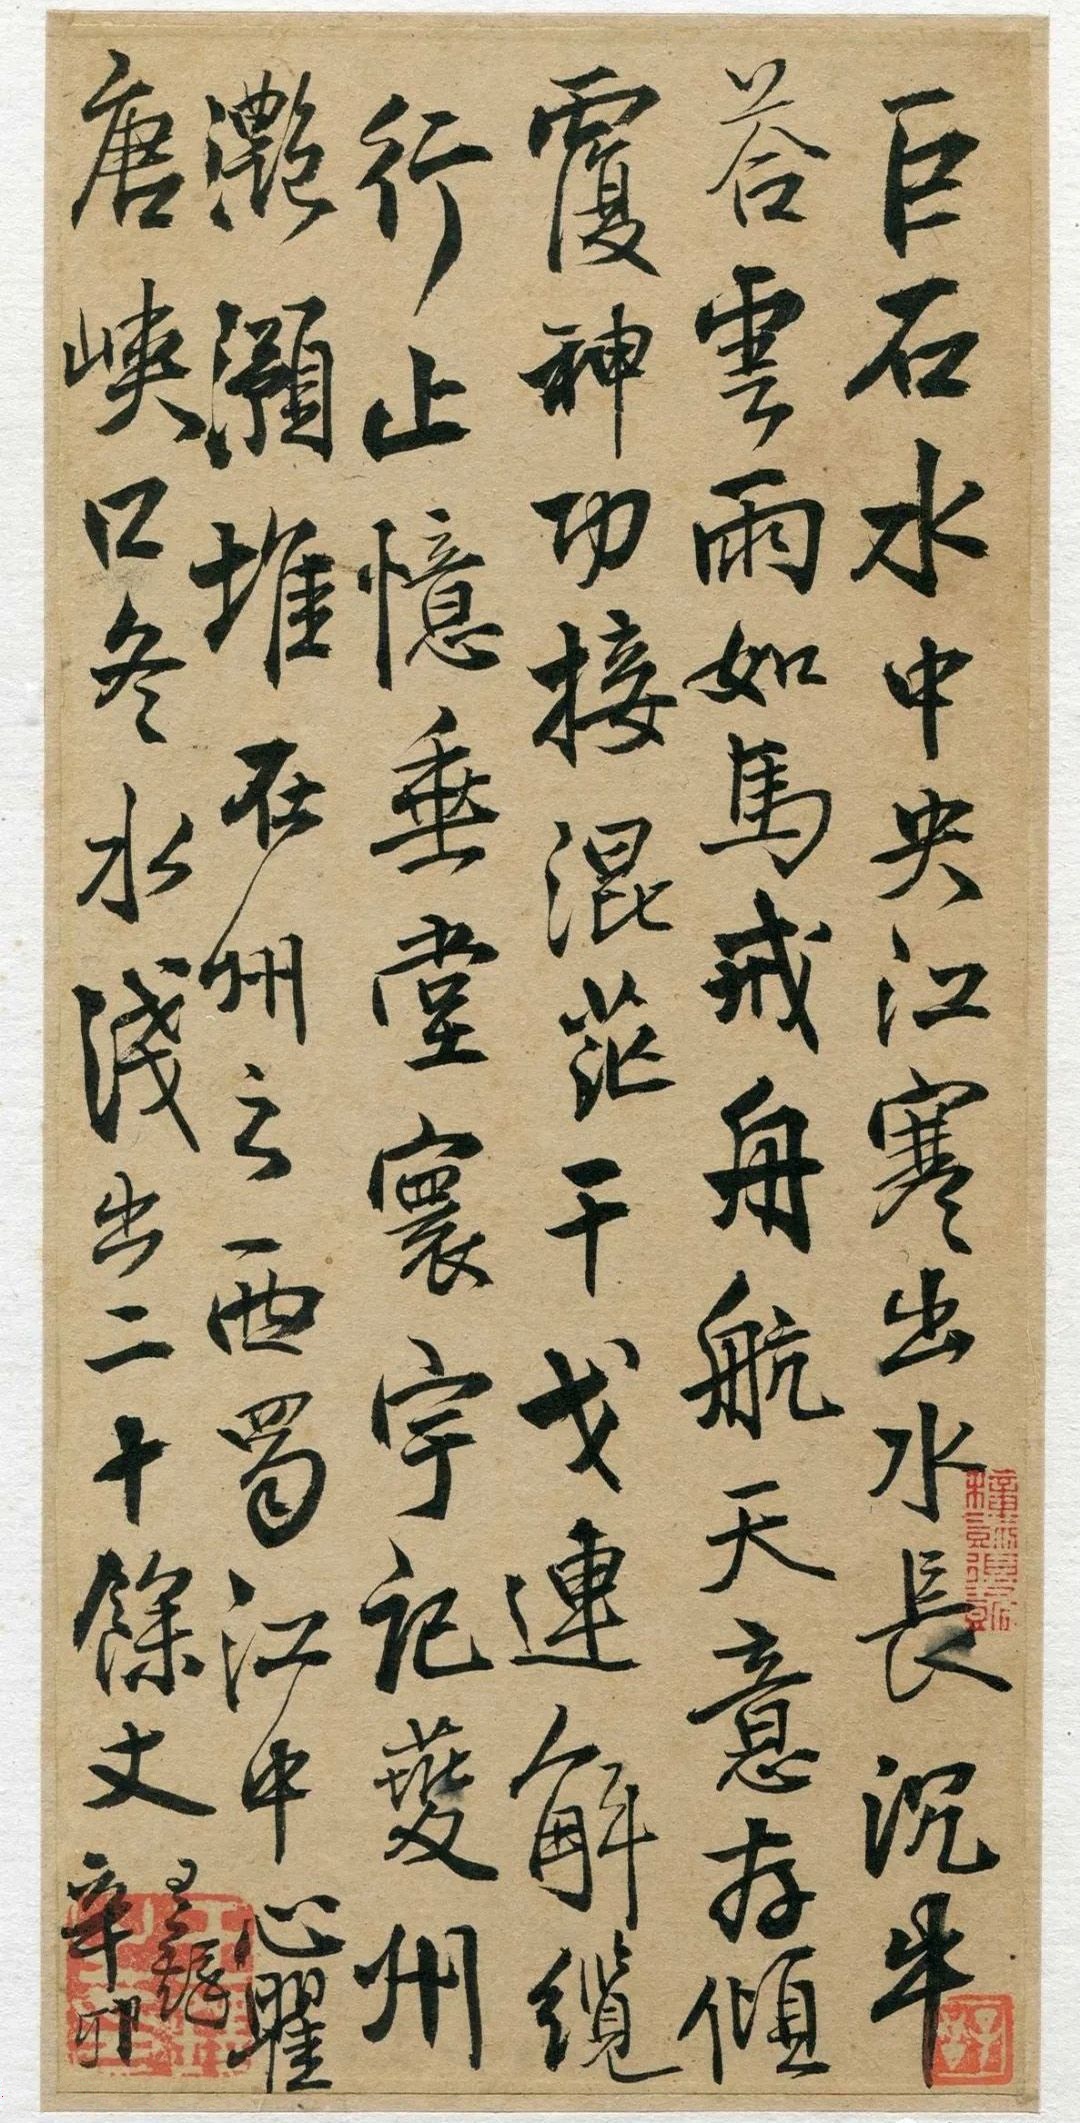 巨石水中央江寒出水長沉牛
荅雲雨如馬戒舟航天意存傾
覆神功接混茫干戈連解纜
行止憶垂堂寰宇記夔州
灔澦堆在州之西蜀江中心瞿
唐峽口冬水淺出二十餘丈
辛卯